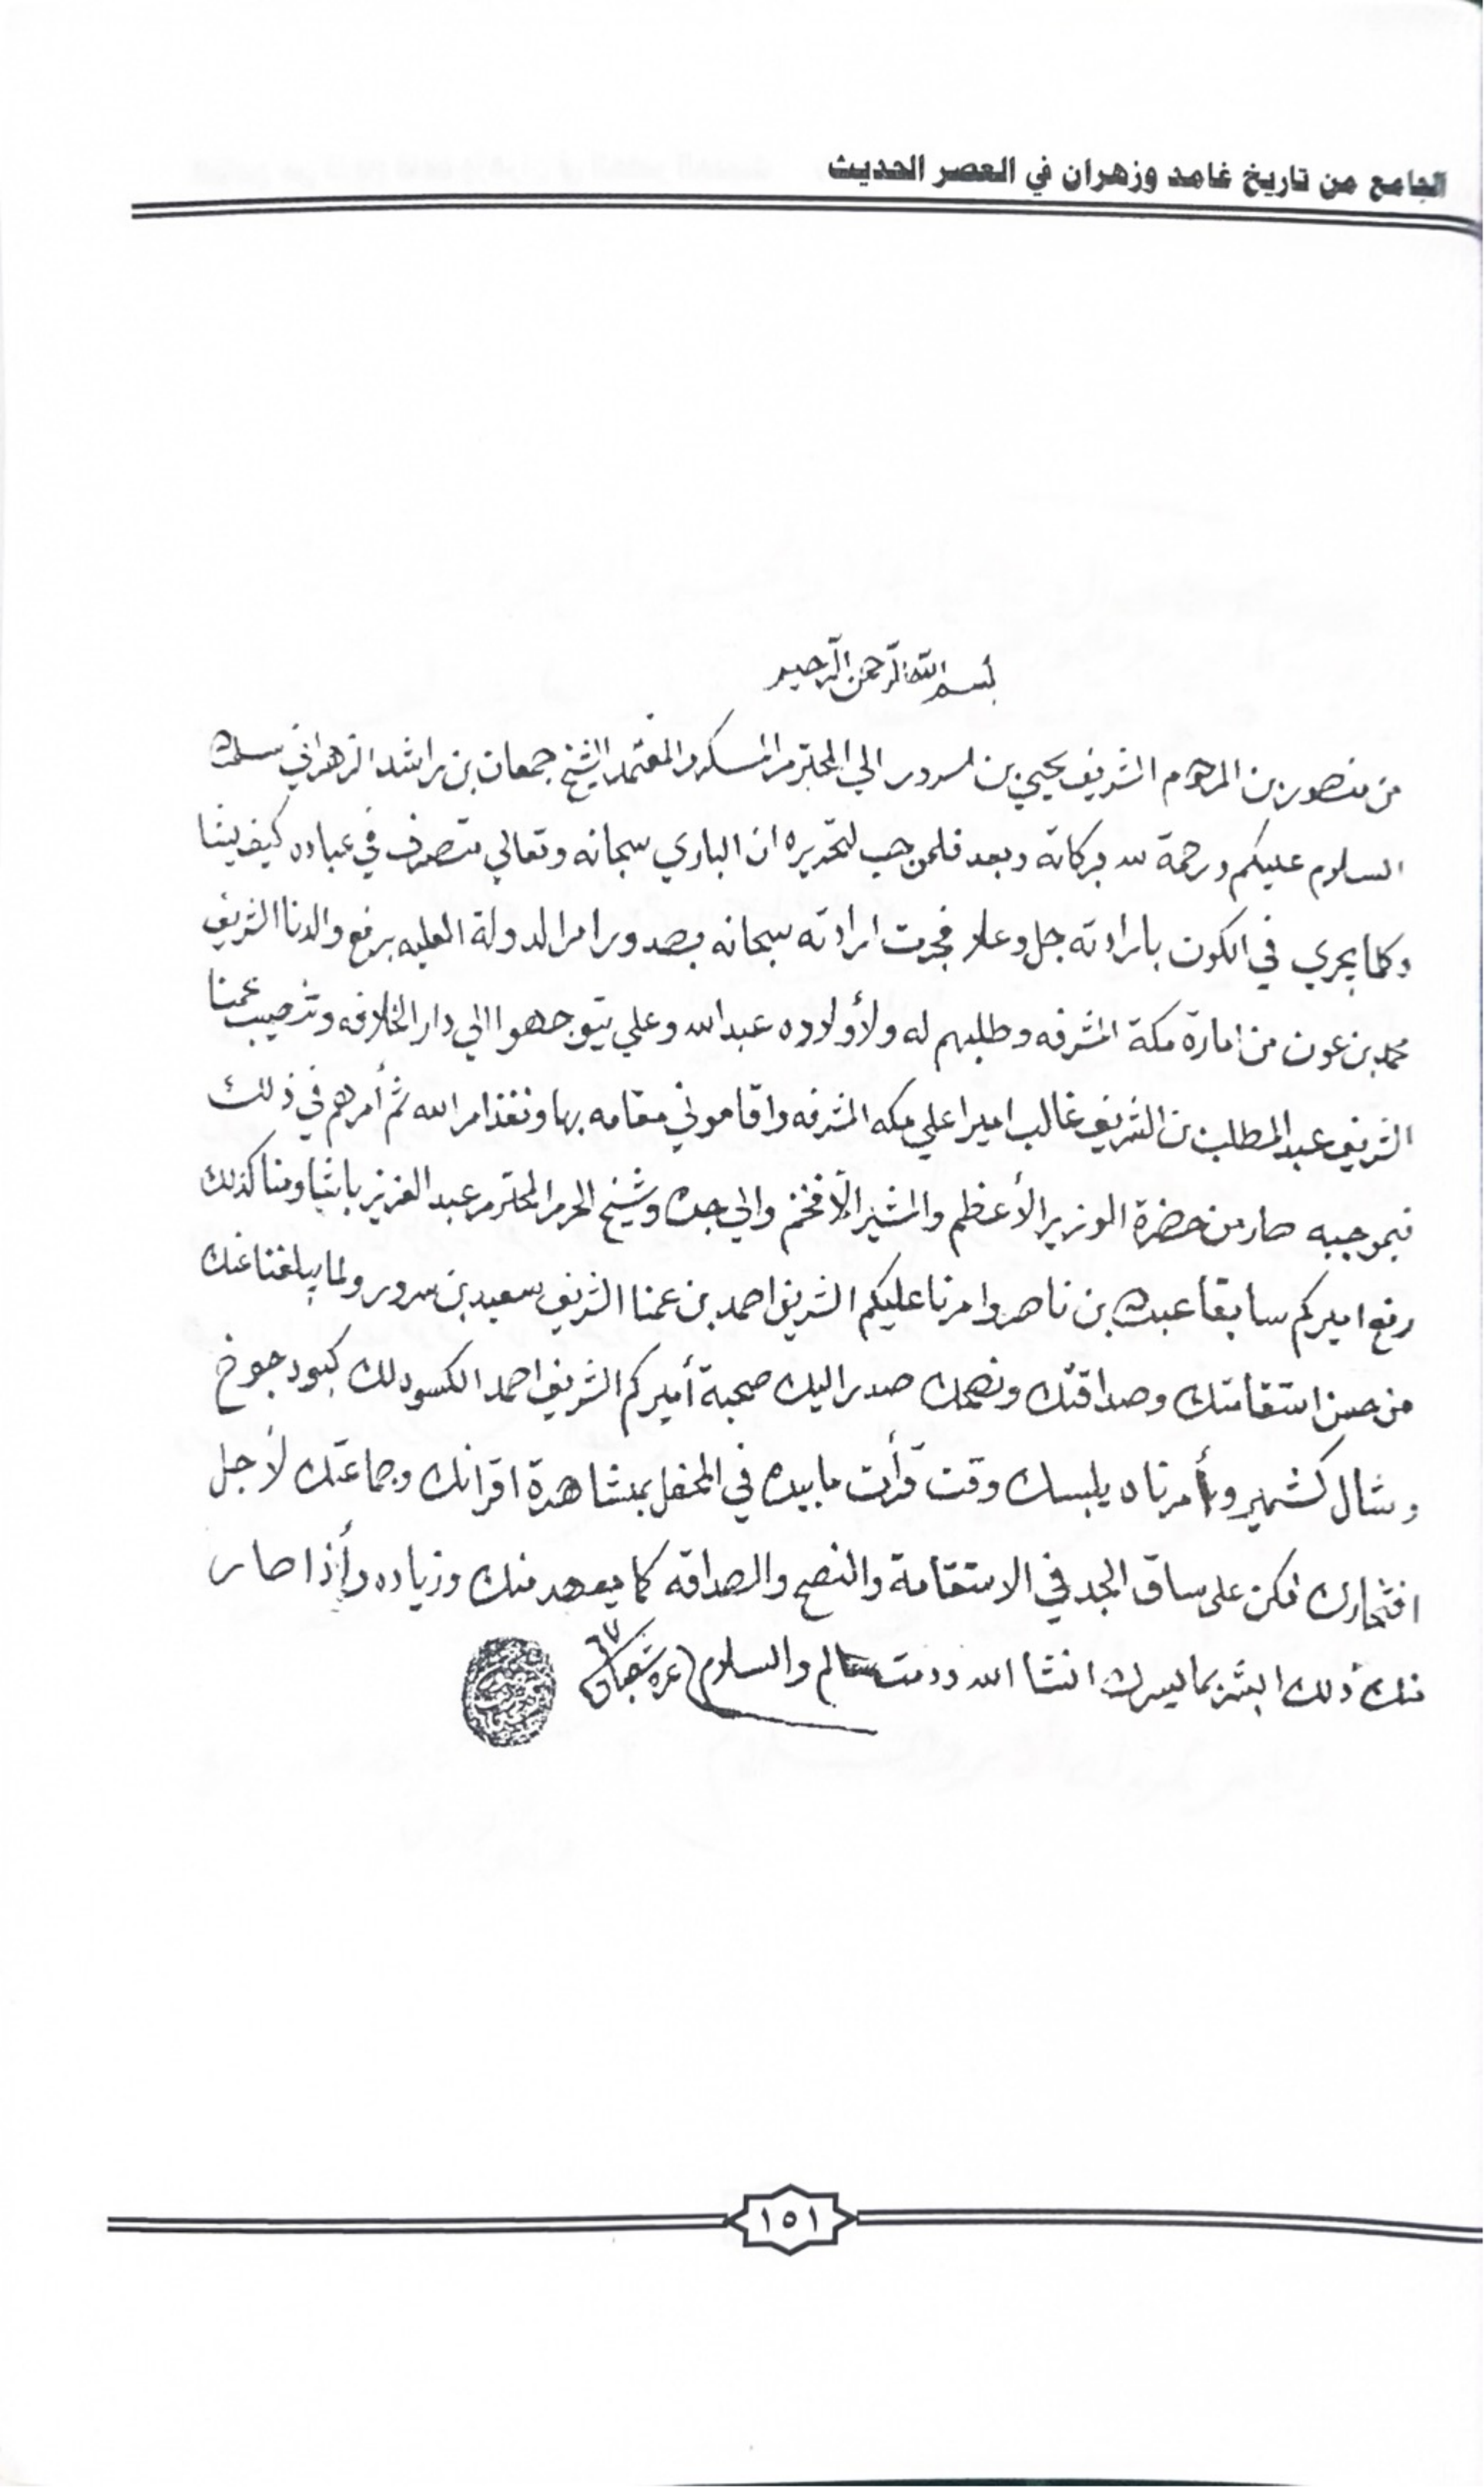 الجامع من تاريخ غامد وزهران في العصر الحديث
بسم الله الرحمن الرحيم
من منصور بن المرحوم الشريف يحيي بن سرور الي المحترم المكرم والمعتمد الشيخ جمعان بن راشد الزهراني سلمه
السلام عليكم ورحمة الله وبركاته وبعد فلموجب لتحريره ان الباري سبحانه وتعالي متصرف في عباده كيف يشا
وكلما يجري في الكون بارادته جل وعلا فجرت ارادته سبحانه بصدور امر الدولة العليه برفع والدنا الشريف
محمد بن عون من امارة مكة المشرفه وطلبهم له ولأولاده عبدالله وعلي يتوجهوا الي دار الخلافه وتنصيب عمنا
الشريف عبدالمطلب بن الشريف غالب اميرا علي مكه المشرفه واقاموني مقامه بها ونفذ امر الله ثم أمرهم في ذلك
فبموجبه صار من حضرة الوزير الأعظم والمشير الأفخم والي جده وشيخ الحرم المحترم عبد العزيز باشا ومنا كذلك
رفع اميركم سابقا عبده بن ناصر وامرنا عليكم الشريف احمد بن عمنا الشريف سعيد بن سرور ولما يبلغنا عنك
من حسن استقامتك وصداقتك ونصحك صدر اليك صحبة أميركم الشريف احمد الكسوه لك كبود جوخ
وشال كشمير وأمرناه يلبسك وقت قرأت ما بيده في المحفل بمشاهدة اقرانك وجماعتك لأجل
افتخارك فكن على ساق الجد في الاستقامة والنصح والصداقه كما يعهد منك وزياده وأذا صار
منك ذلك ابشر بما يسرك انشا الله ودمت سالم والسلام غرة شعبان ٦٧
١٥١